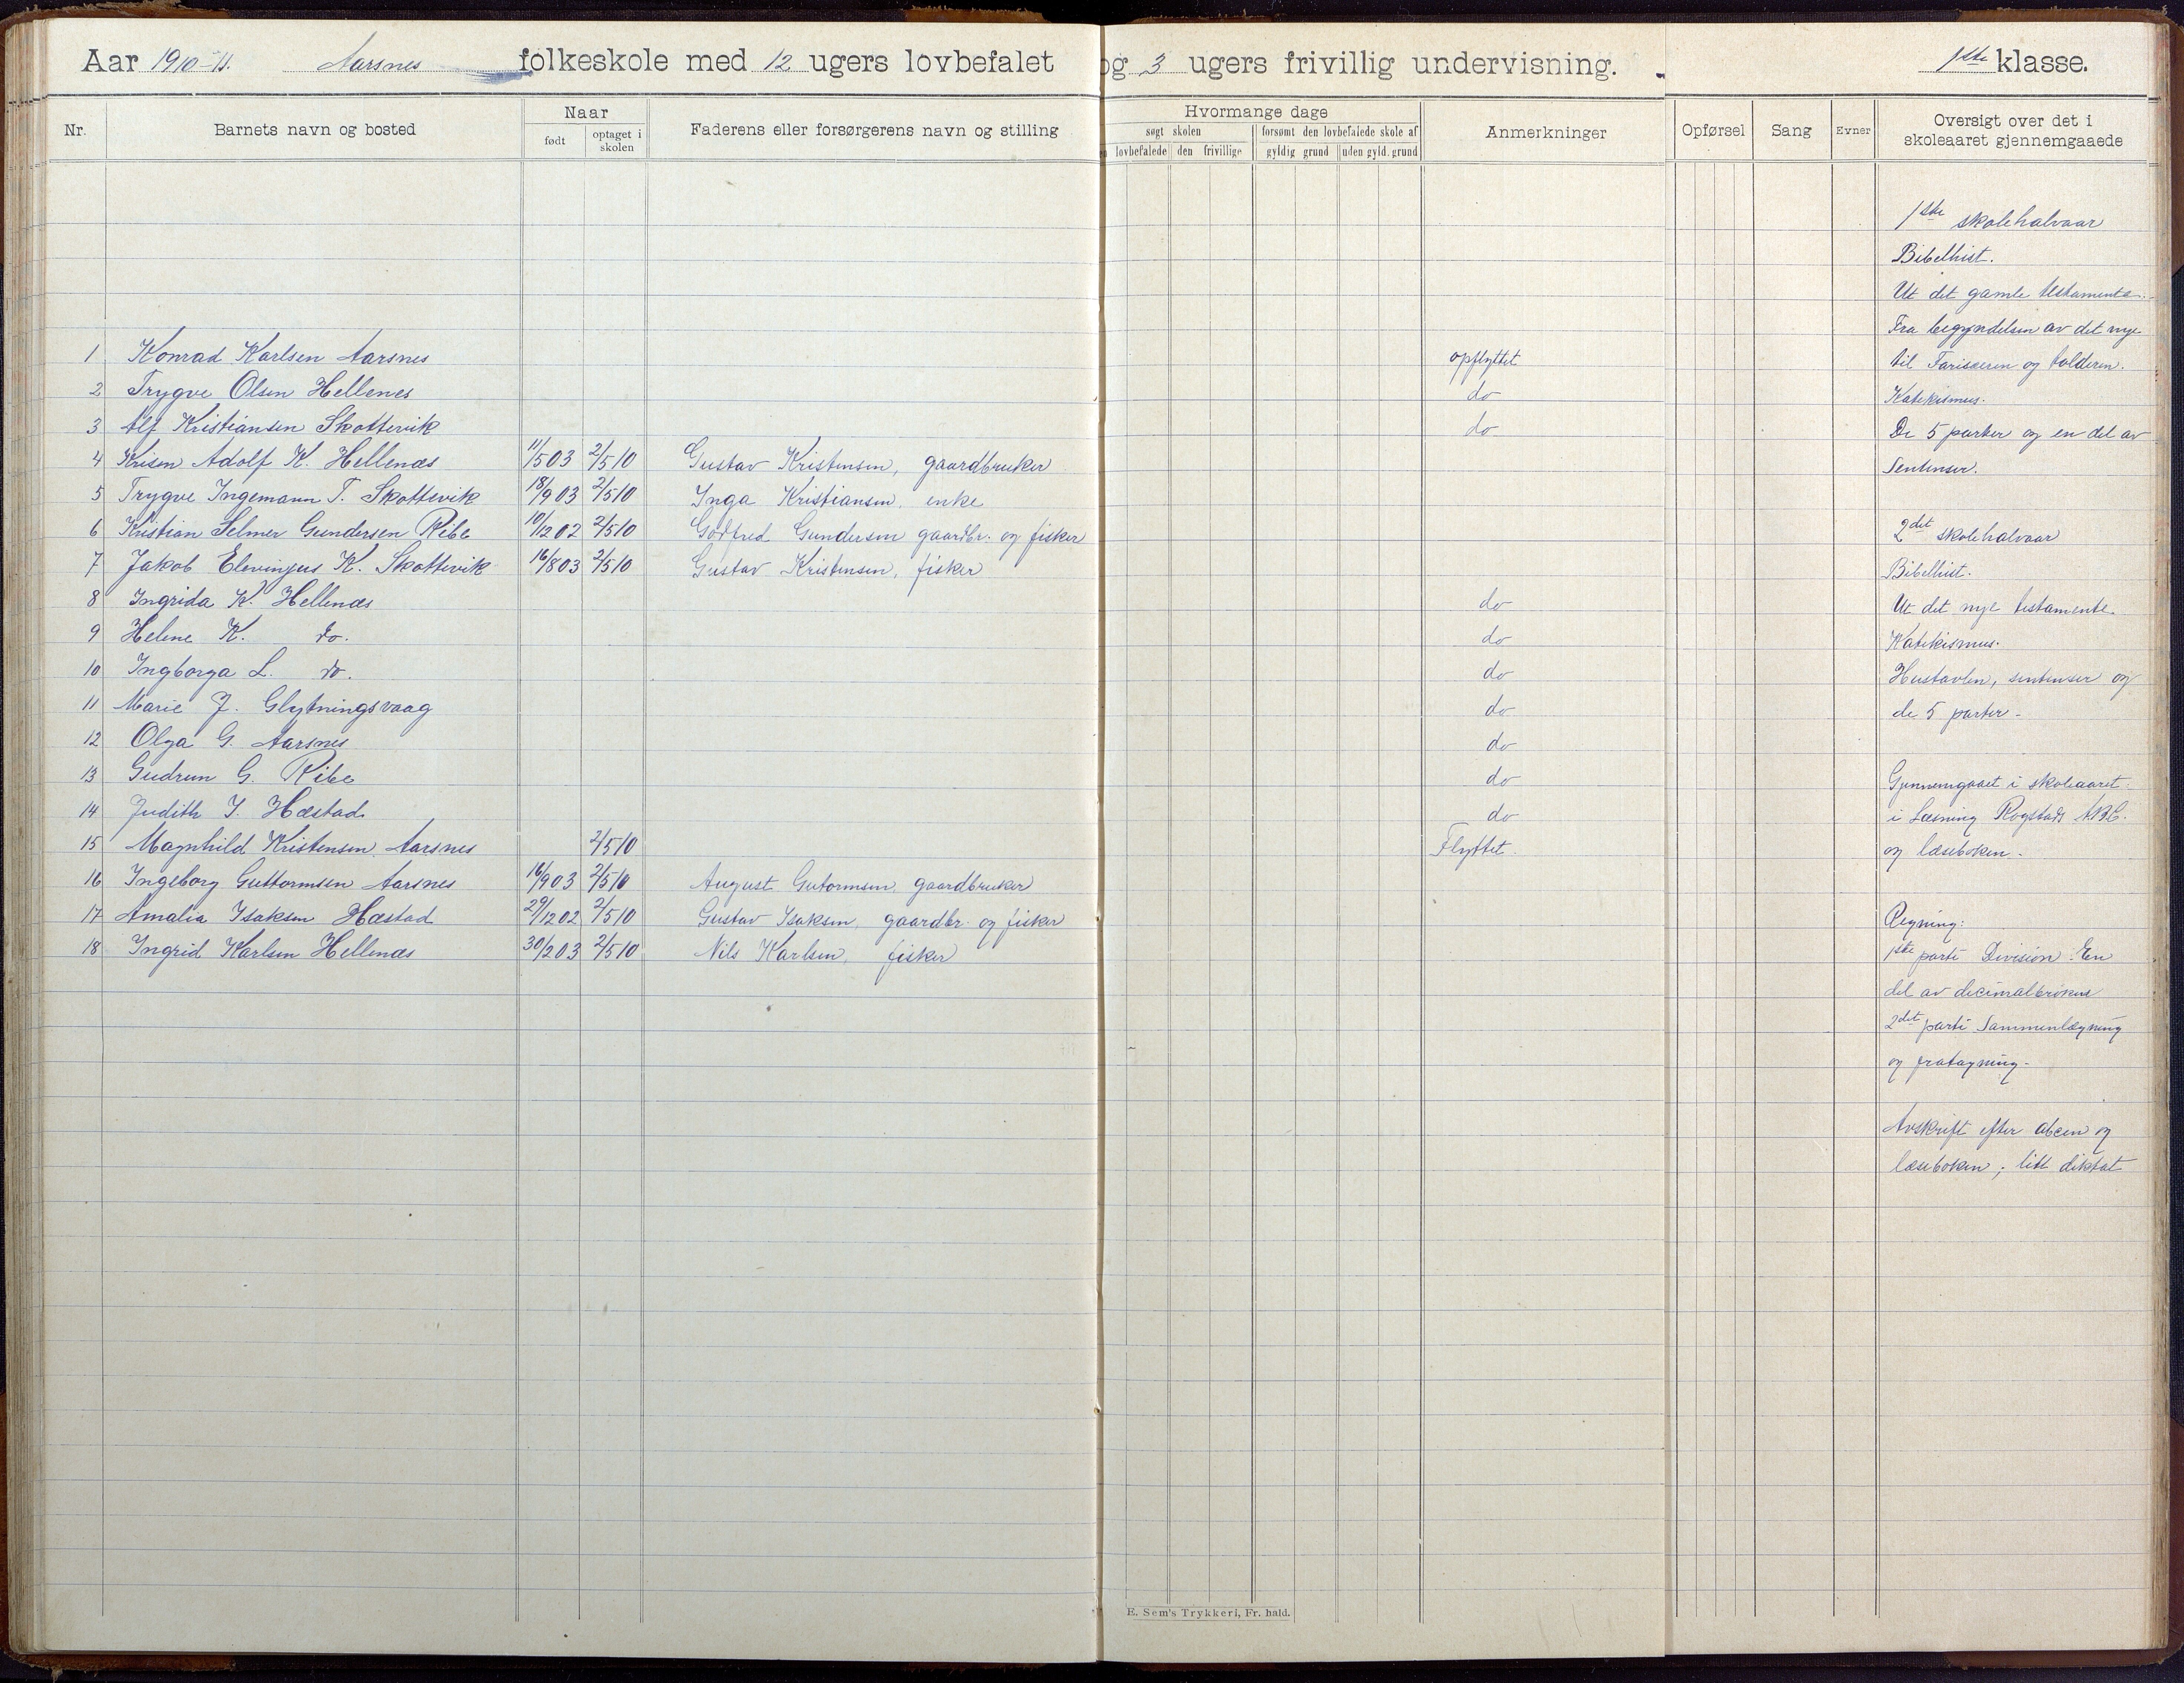 Aar 1910-11. Aarsnes folkeskole med 12 ugers lovbefalet og 3 ugers frivillig undervisning. 1ste klasse.
Nr. Barnets navn og bosted Naar født optaget i skolen Faderens eller forsørgerens navn og stilling Hvormange dage søgt skolen lovbefalede den frivillige forsømt den lovbefalede skole af gyldig grund uden gyld. grund Anmerkninger Opførsel Sang Evner Oversigt over det i skoleaaret gjennemgaaede
1 Konrad Karlsen Aarsnes opflyttet
2 Trygve Olsen Hellenes do
3 Alf Kristiansen Skottevik do
4 Krisen Adolf K. Hellenæs 11/5 03 2/5 10 Gustav Kristensen, gaardbruker
5 Trygve Ingemann T. Skottevik 18/9 03 2/5 10 Inga Kristiansen, enke
6 Kristian Selmer Gundersen Ribe 10/12 02 2/5 10 Godfred Gundersen gaardbr. og fisker
7 Jakob K. Skottevik 16/8 03 2/5 10 Gustav Kristensen, fisker
8 Ingrida K. Hellenæs do
9 Helene K. do. do
10 Ingborga L. do. do
11 Marie J. Glytningsvaag do
12 Olga G. Aarsnes do
13 Gudrun G. Ribe do
14 Judith I. Hæstad do
15 Magnhild Kristensen Aarsnes 2/5 10 Flyttet
16 Ingeborg Guttormsen Aarsnes 16/9 03 2/5 10 August Gutormsen gaardbruker
17 Amalia Isaksen Hæstad 29/12 02 2/5 10 Gustav Isaksen, gaardbr. og fisker
18 Ingrid Karlsen Hellenæs 30/2 03 2/5 10 Nils Karlsen, fisker
1ste skolehalvaar
Bibelhist.
Ut det gamle testamente.
Fra begyndelsen av det nye
til Fariseeren og tolderen.
Katekismus.
De 5 parter og en del av
Sentenser.
2det skolehalvaar
Bibelhist.
Ut det nye testamente.
Katekismus.
Hustavlen, sentenser og
de 5 parter.
Gjennemgaaet i skoleaaret
i Læsning Rogstads ABC.
og læseboken.
Regning:
1ste parti Division. En
del av decimalbrøkene
2det parti Sammenlægning
og fratagning.
Avskrift efter abcen og
læseboken; litt diktat
E. Sem's Trykkeri, Fr. hald.